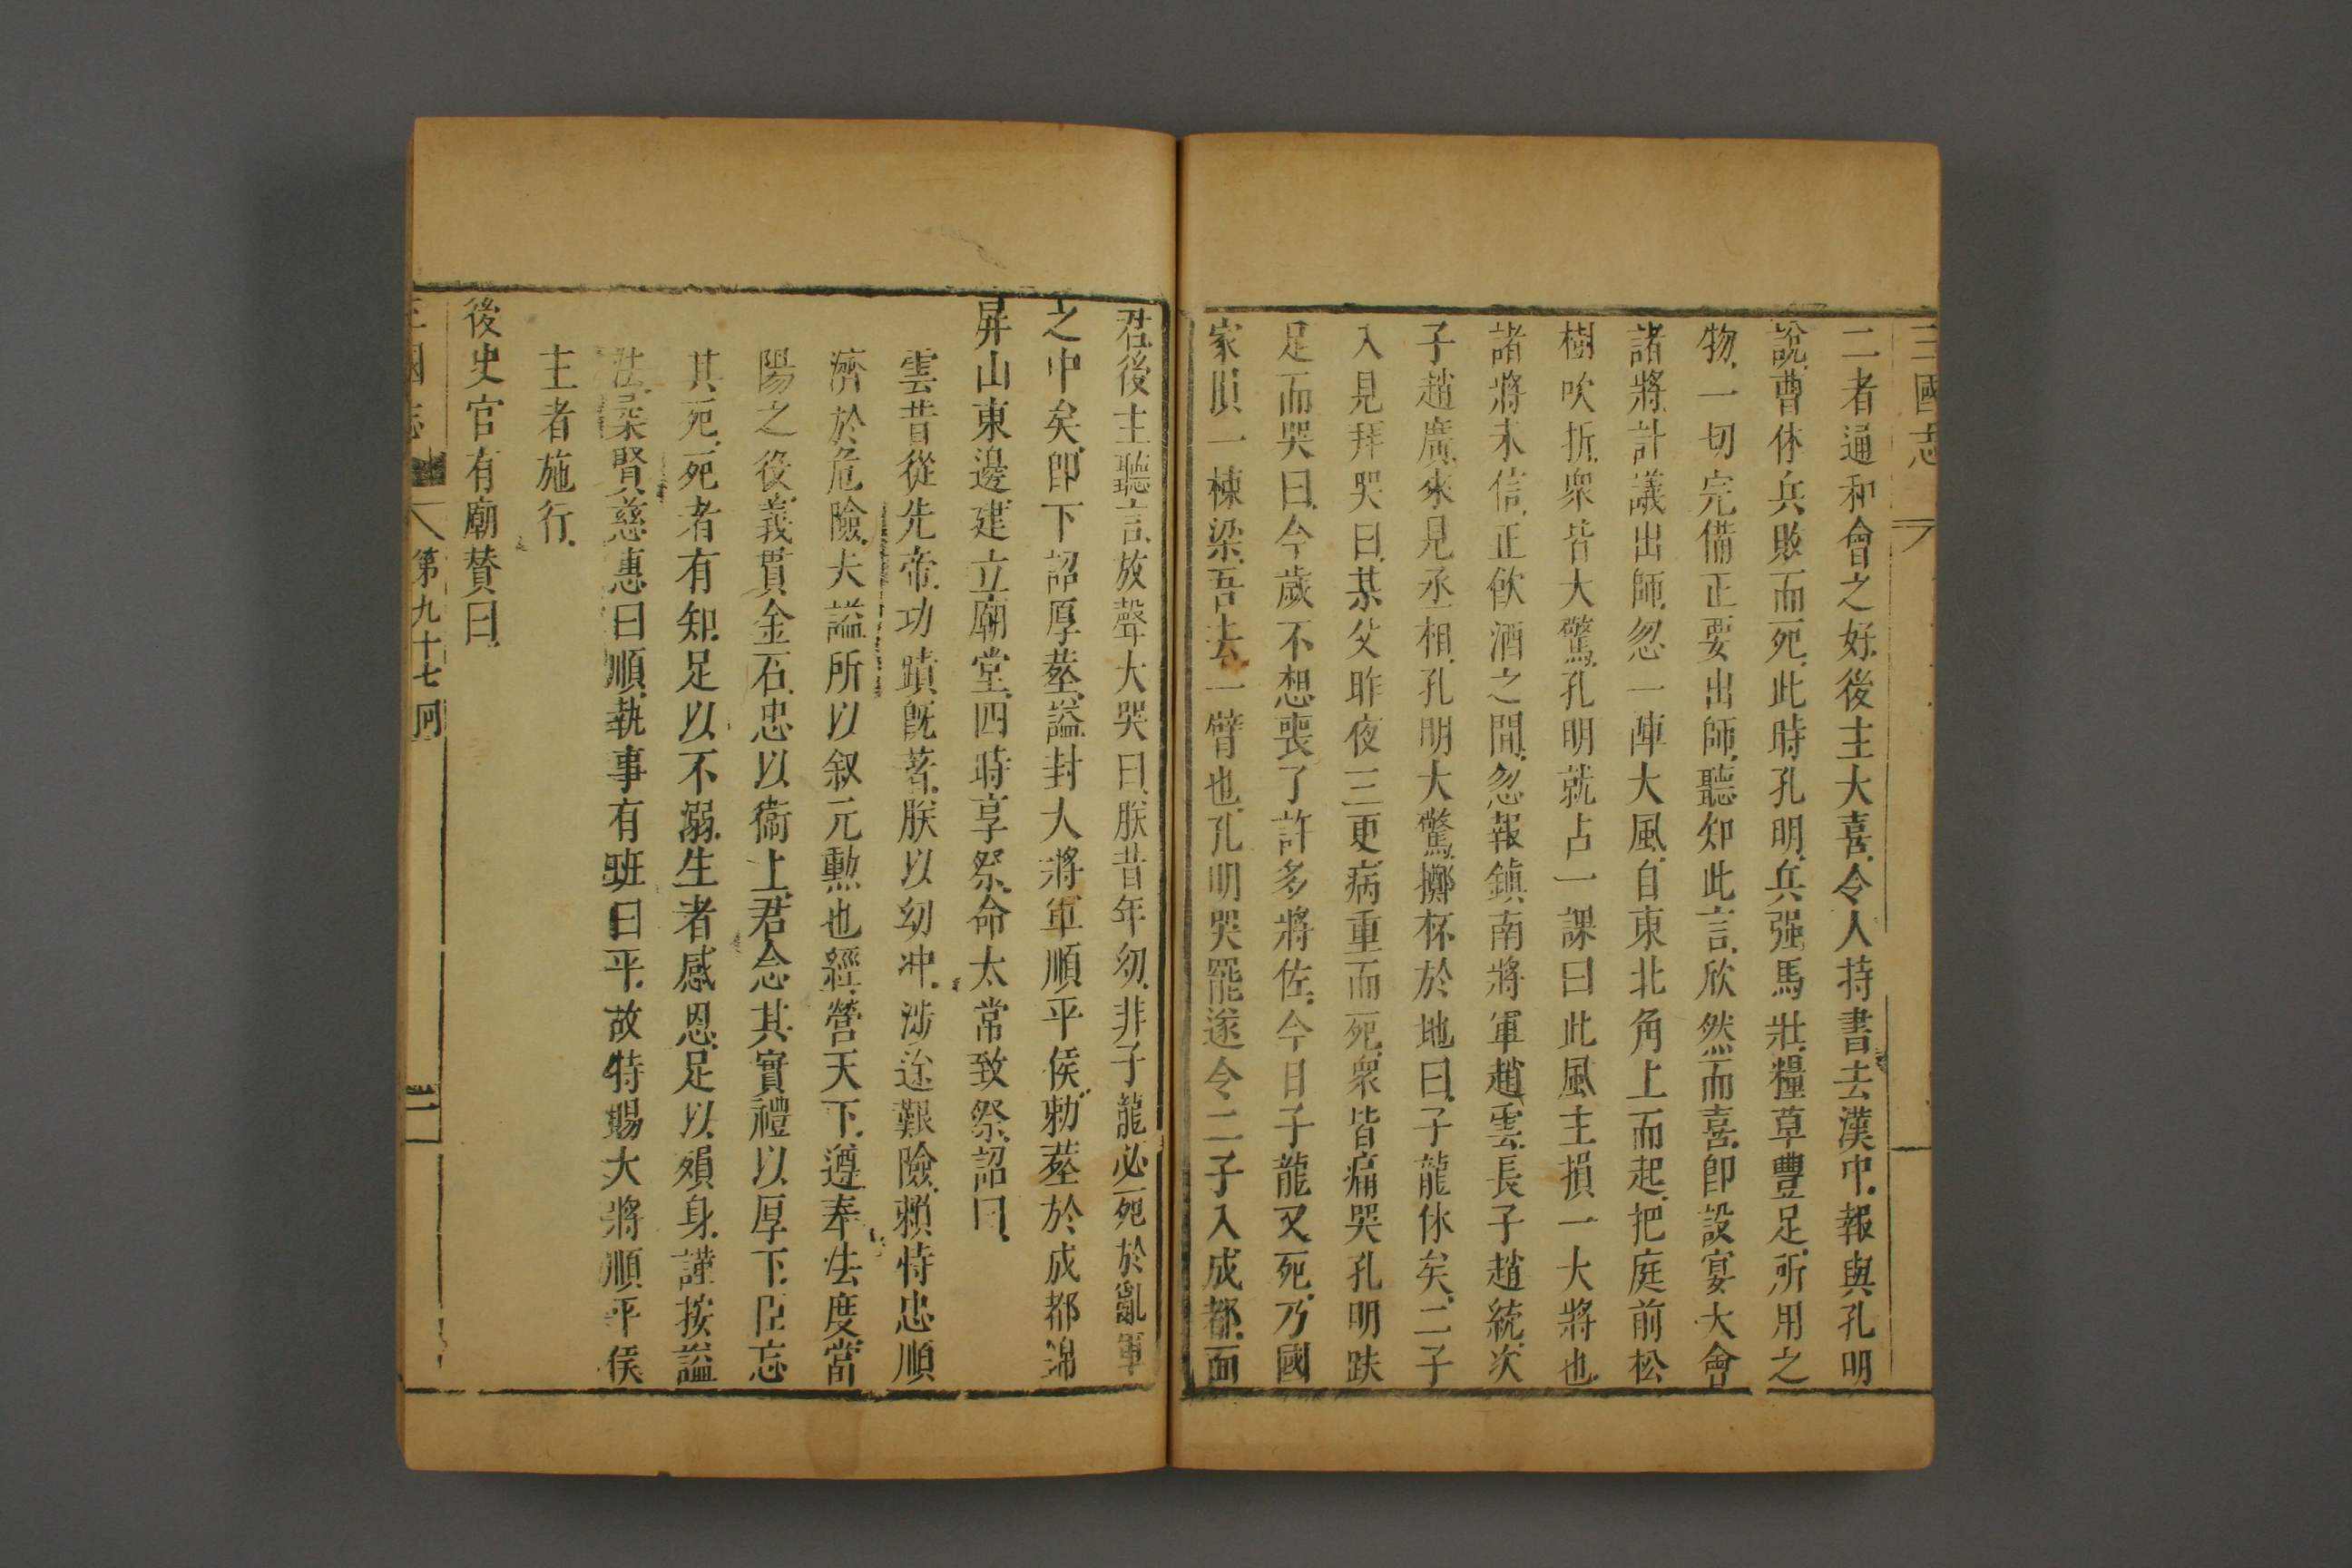 三國志
二者通和會之好後主大喜令人持書去漢中報與孔明
說曹休兵敗而死此時孔明兵强馬壯糧草豐足所用之
物一切完備正要出師聽知此言欣然而喜卽設宴大會
諸將計議出師忽一陣大風自東北角上而起把庭前松
樹吹折衆皆大驚孔明就占一課曰此風主損一大將也
諸將未信正飮酒之間忽報鎮南將軍趙雲長子趙統次
子趙廣來見丞相孔明大驚擲杯於地曰子龍休矣二子
入見拜哭曰某父昨夜三更病重而死衆皆痛哭孔明跌
足而哭曰今歲不想喪了許多將佐今日子龍又死乃國
家損一棟梁吾去一臂也孔明哭罷遂令二子入成都面
君後主聽言放聲大哭曰朕昔年幼非子龍必死於亂軍
之中矣卽下詔厚塟謚封大將軍順平侯勅塟於成都錦
屏山東邊建立廟堂四時享祭命太常致祭詔曰
雲昔從先帝功蹟旣著朕以幼冲涉途艱險賴恃忠順
濟於危險夫謚所以叙元勲也經營天下遵奉法度當
陽之役義貫金石忠以衞上君念其實禮以厚下臣忘
其死死者有知足以不溺生者感恩足以殞身謹按謚
法柔賢慈惠曰順執事有班曰平故特賜大將順平侯
主者施行
後史官有廟贊曰
三國志
第九十七囘
二